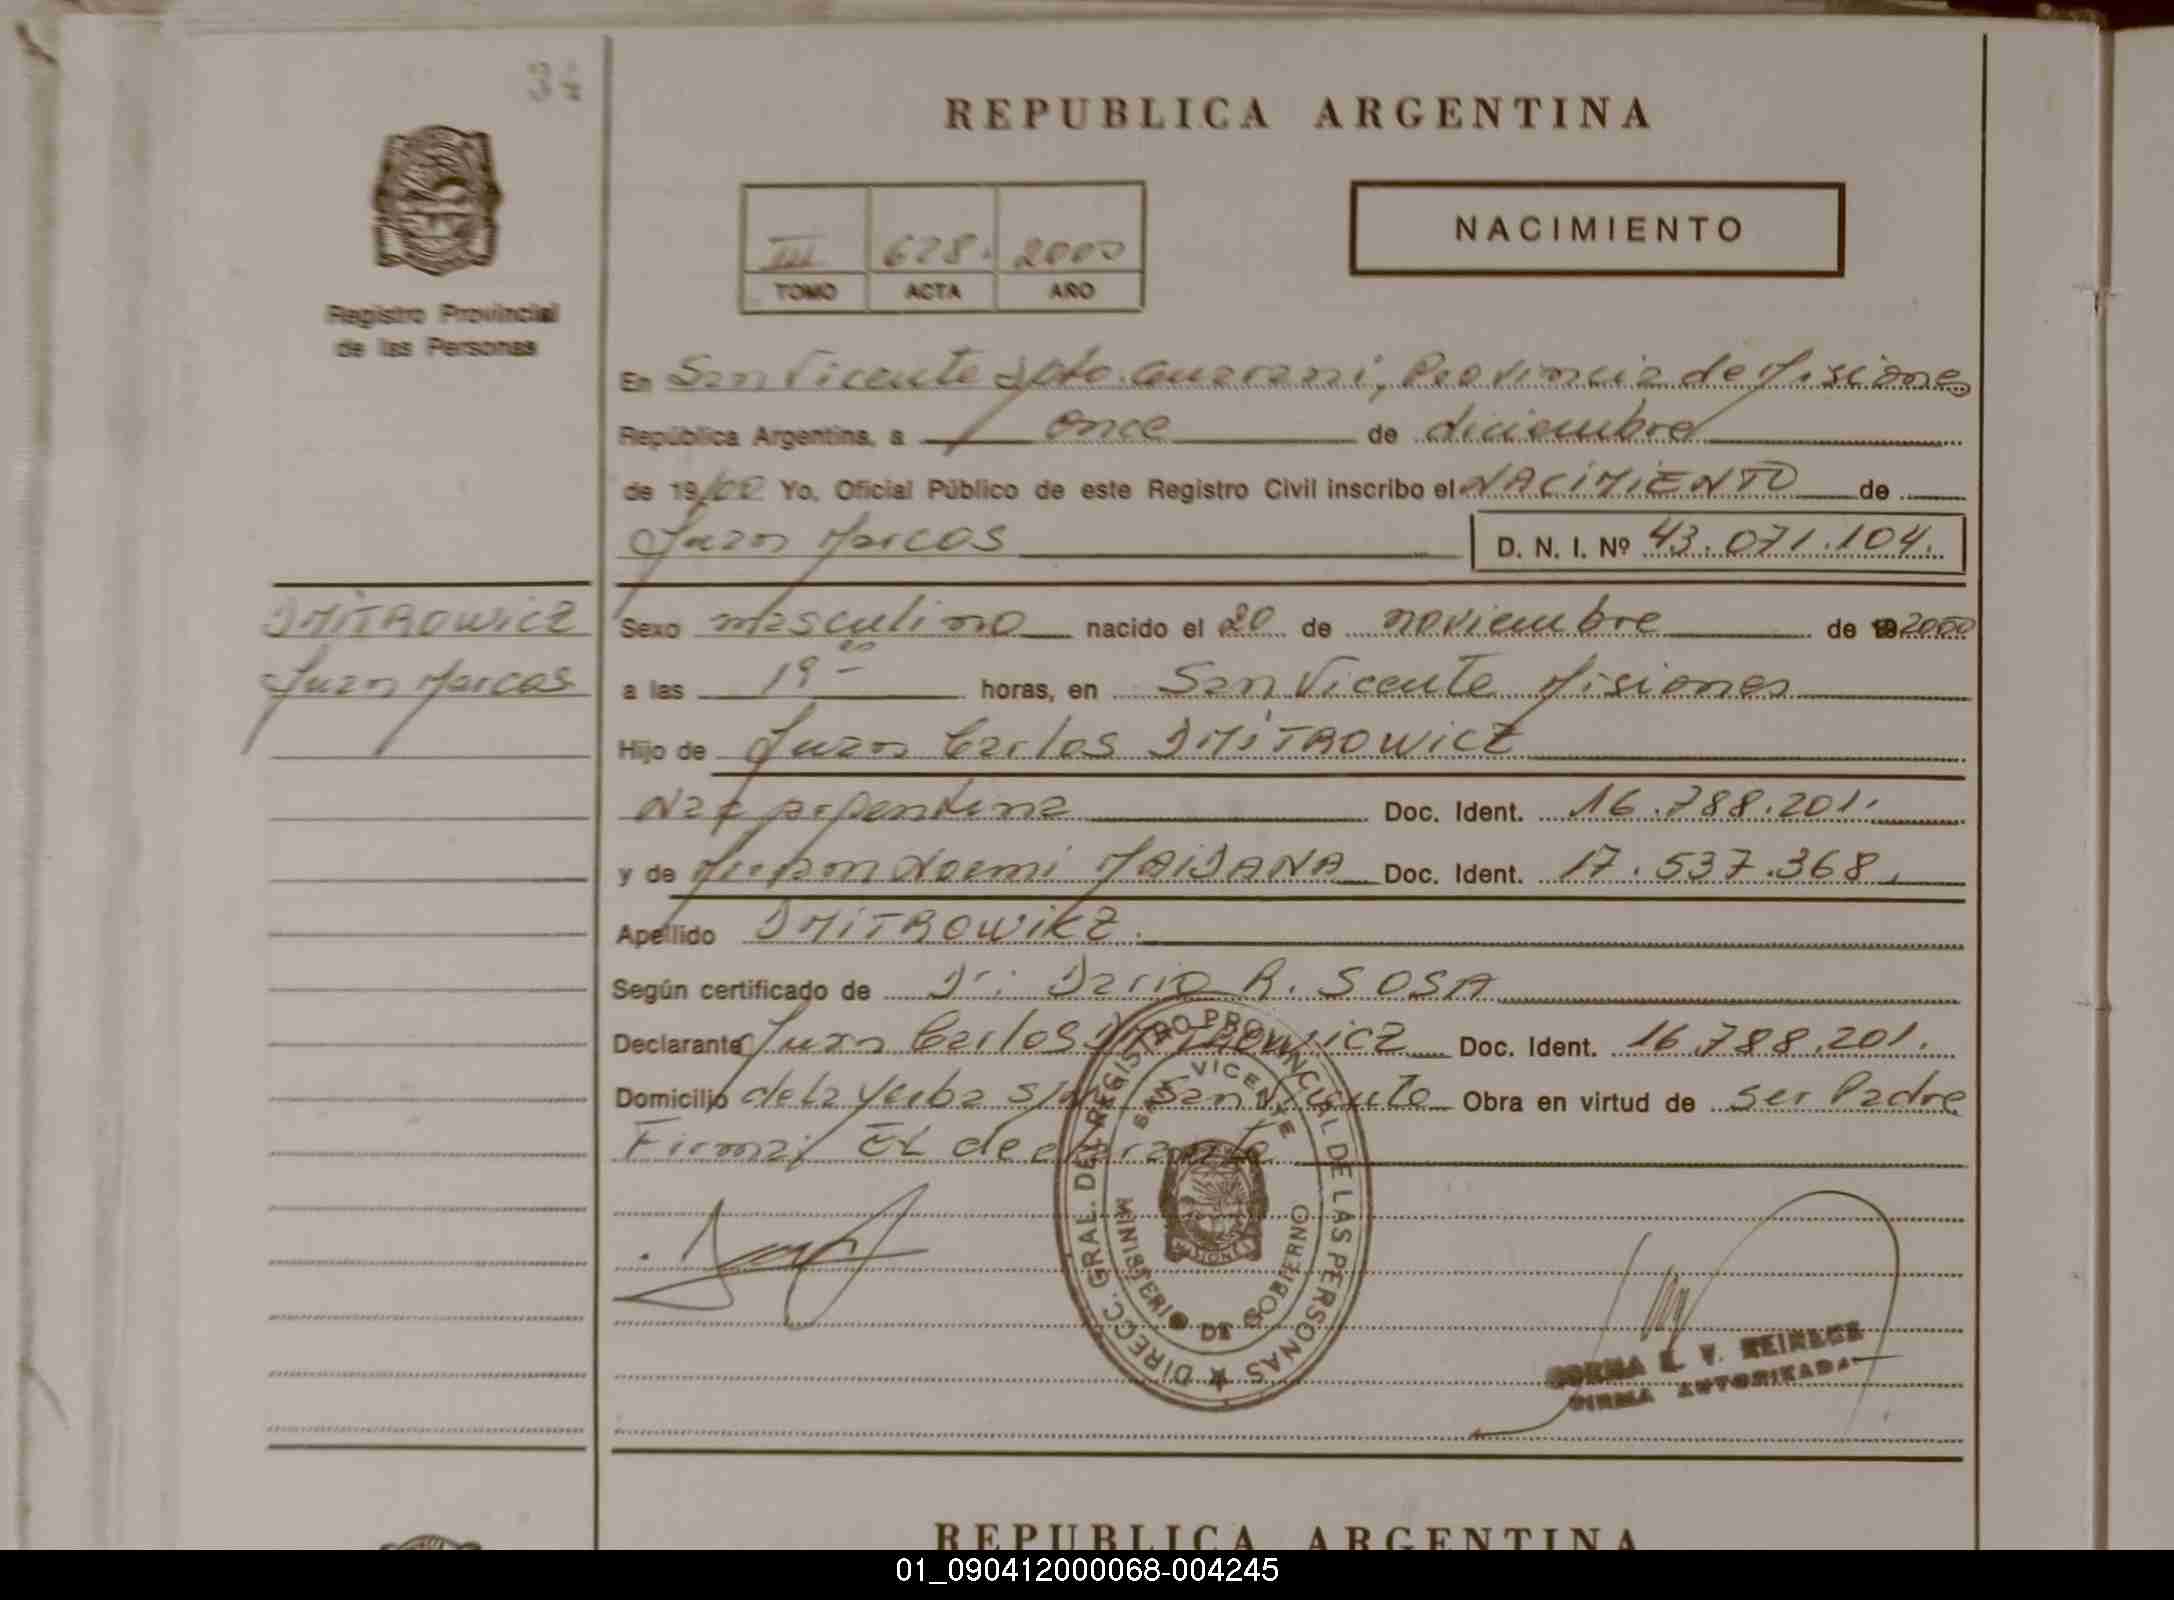 34
REPUBLICA ARGENTINA
III 628. 2000
TOMO ACTA AÑO
NACIMIENTO
Registro Provincial
de las Personas
En San Vicente Dpto. Guarani, Provincia de Misiones
República Argentina, a once de diciembre
de 19/00 Yo, Oficial Público de este Registro Civil inscribo el NACIMIENTO de
Juan Marcos D. N. I. Nº 43.071.104.
DMITROWICZ
Juan Marcos
Sexo masculino nacido el 20 de noviembre de 2000
a las 19 horas, en San Vicente Misiones
Hijo de Juan Carlos DMITROWICZ
argentina Doc. Ident. 16.788.201.
y de Noemi Doc. Ident. 17.537.368.
Apellido DMITROWICZ.
Según certificado de Dr: Dario R. SOSA
Declarante Juan Carlos DMITROWICZ Doc. Ident. 16.788.201.
Domicilio de la Yerba s/nº San Vicente Obra en virtud de ser Padre
Firma: EL declarante
DIRECC. GRAL. DEL REGISTRO PROVINCIAL DE LAS PERSONAS
SAN VICENTE
MISIONES
MINISTERIO DE GOBIERNO
NORMA E. V. REINEGE
FIRMA AUTORIZADA
REPUBLICA ARGENTINA
01_090412000068-004245